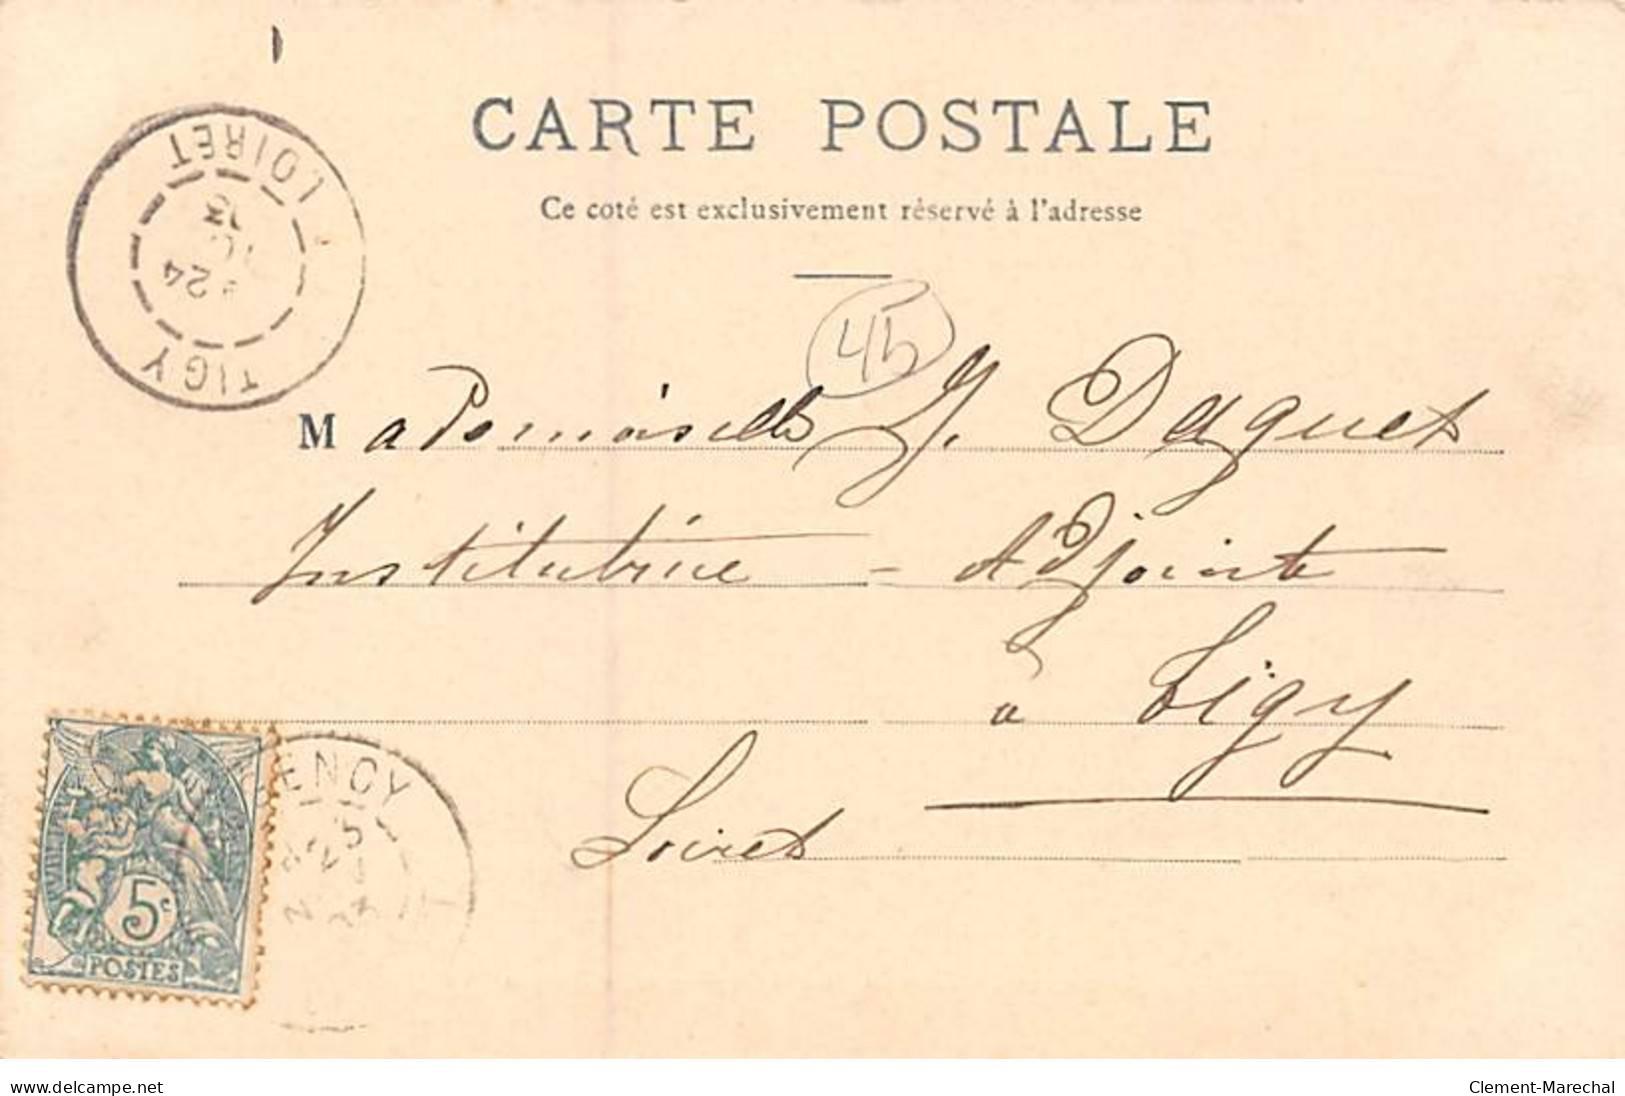 CARTE POSTALE
Ce coté est exclusivement réservé à l'adresse
TIGY
LOIRET
24
45
Mademoiselle J. Daguet
Institutrice - Adjointe
à Tigy
Loiret
ENCY
5c
POSTES
www.delcampe.net
Clement-Marechal